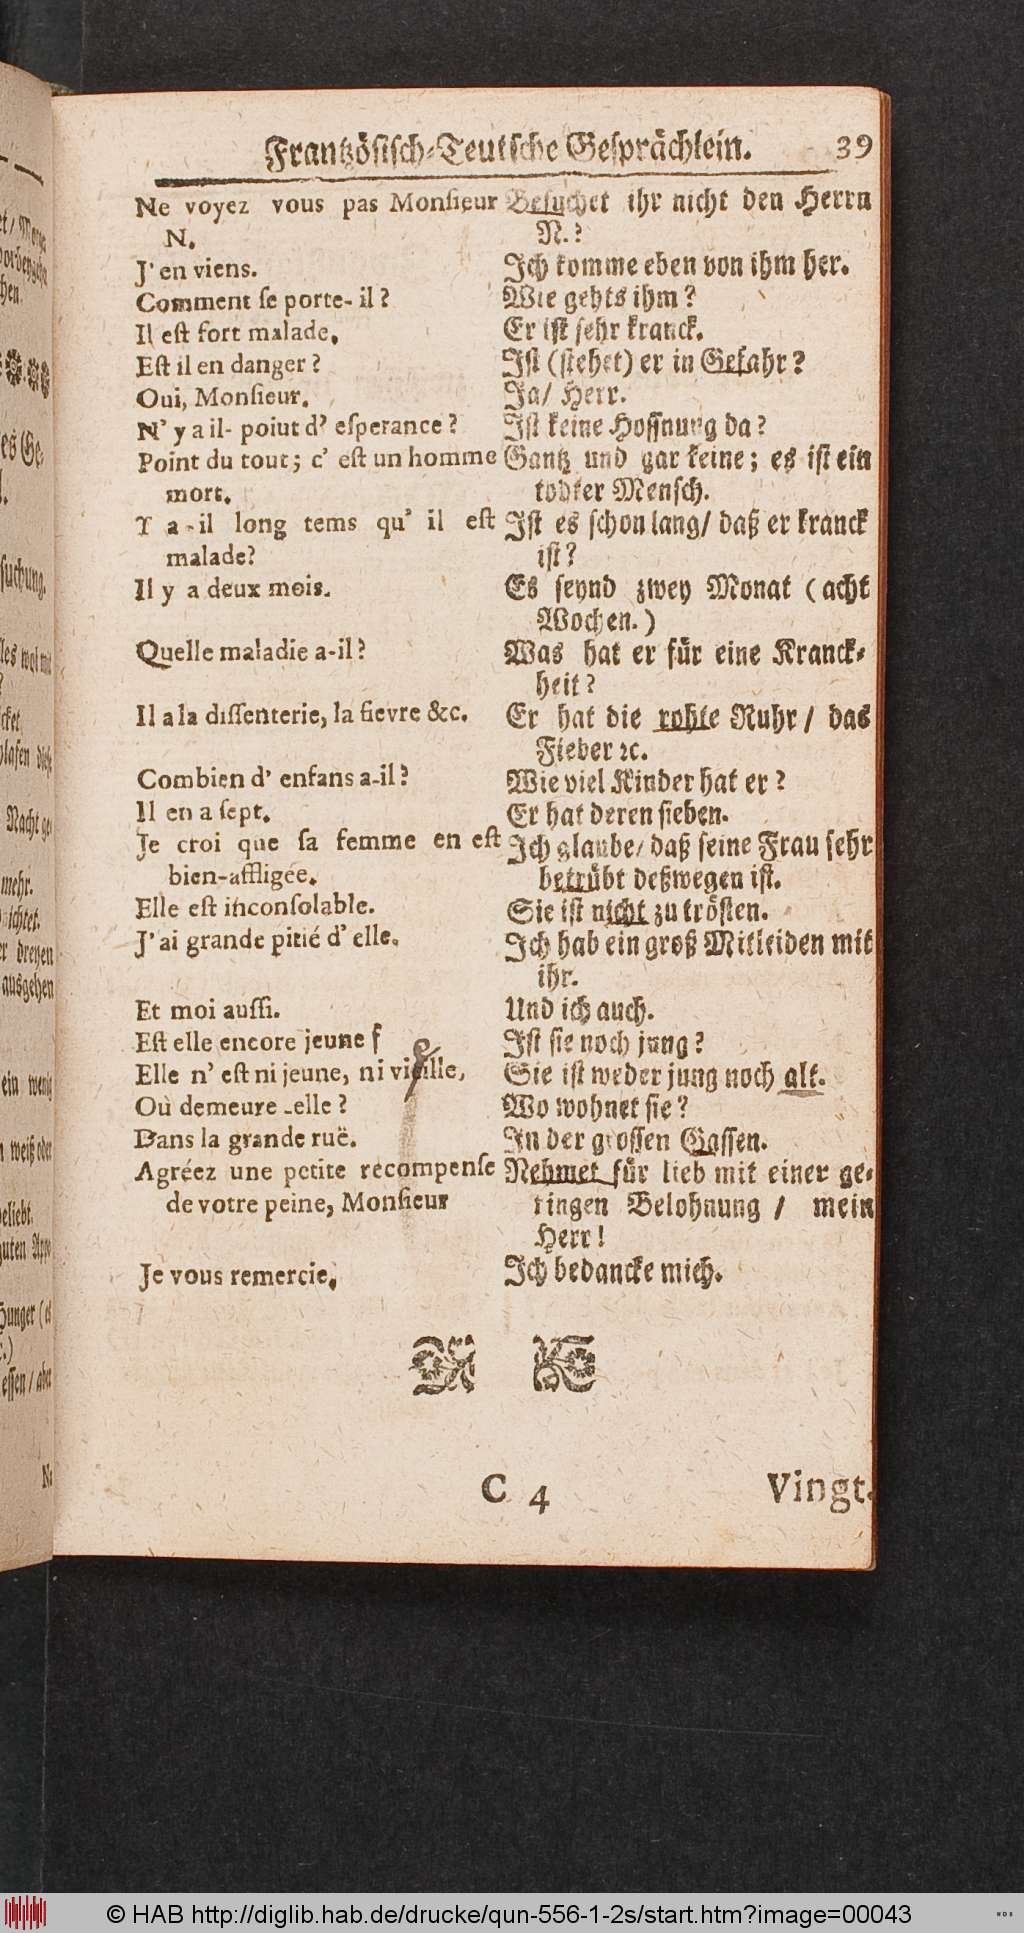 Frantzösisch-Teutsche Gesprächlein. 39
Ne voyez vous pas Monſieur
N.
J'en viens.
Comment ſe porte-il?
Il eſt fort malade.
Eſt il en danger?
Oui, Monſieur.
N'y a il-poiut d'eſperance?
Point du tout; c'eſt un homme
mort.
Y a-il long tems qu'il eſt
malade?
Il y a deux mois.
Quelle maladie a-il?
Il a la diſſenterie, la fievre &c.
Combien d'enfans a-il?
Il en a ſept.
Je croi que ſa femme en eſt
bien-affligée.
Elle eſt inconſolable.
J'ai grande pitié d'elle.
Et moi auſſi.
Eſt elle encore jeune ſ
Elle n'eſt ni jeune, ni vieille,
Où demeure-elle?
Dans la grande ruë.
Agréez une petite recompenſe
de votre peine, Monſieur
Je vous remercie.
Beſuchet ihr nicht den Herrn
N.?
Ich komme eben von ihm her.
Wie gehts ihm?
Er iſt ſehr kranck.
Iſt (ſtehet) er in Gefahr?
Ja/ Herr.
Iſt keine Hoffnung da?
Gantz und gar keine; es iſt ein
todter Menſch.
Iſt es ſchon lang/ daß er kranck
iſt?
Es ſeynd zwey Monat (acht
Wochen.)
Was hat er für eine Kranck-
heit?
Er hat die rohte Ruhr/ das
Fieber ꝛc.
Wie viel Kinder hat er?
Er hat deren ſieben.
Ich glaube/ daß ſeine Frau ſehr
betrübt deßwegen iſt.
Sie iſt nicht zu tröſten.
Ich hab ein groß Mitleiden mit
ihr.
Und ich auch.
Iſt ſie noch jung?
Sie iſt weder jung noch alt.
Wo wohnet ſie?
In der groſſen Gaſſen.
Nehmet für lieb mit einer ge-
ringen Belohnung/ mein
Herr!
Ich bedancke mich.
C 4 Vingt.
© HAB http://diglib.hab.de/drucke/qun-556-1-2s/start.htm?image=00043